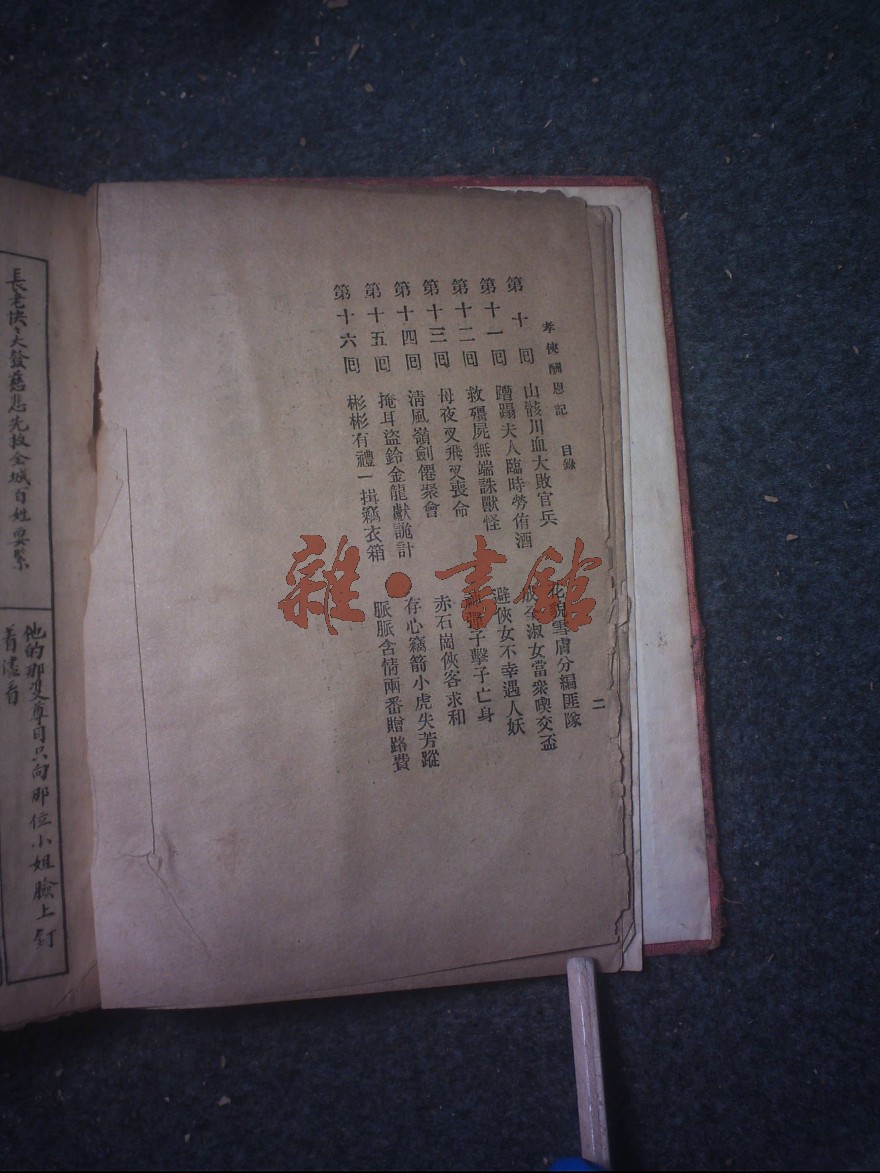 孝俠酬恩記　目錄　二
第十回　山骸川血大敗官兵　花貌雪膚分編匪隊
第十一回　蹧蹋夫人臨時勞侑酒　淑女當衆喫交盃
第十二回　救殭屍無端誅獸怪　避俠女不幸遇人妖
第十三回　母夜叉飛叉喪命　彈子擊子亡身
第十四回　清風嶺劍僊聚會　赤石崗俠客求和
第十五回　掩耳盜鈴金龍獻詭計　存心竊箭小虎失芳蹤
第十六回　彬彬有禮一揖竊衣箱　脈脈含情兩番贈路費
長老快々大發慈悲先救全城百姓要緊
他的那雙尊目只向那位小姐臉上釘
着儘看
雜·書館